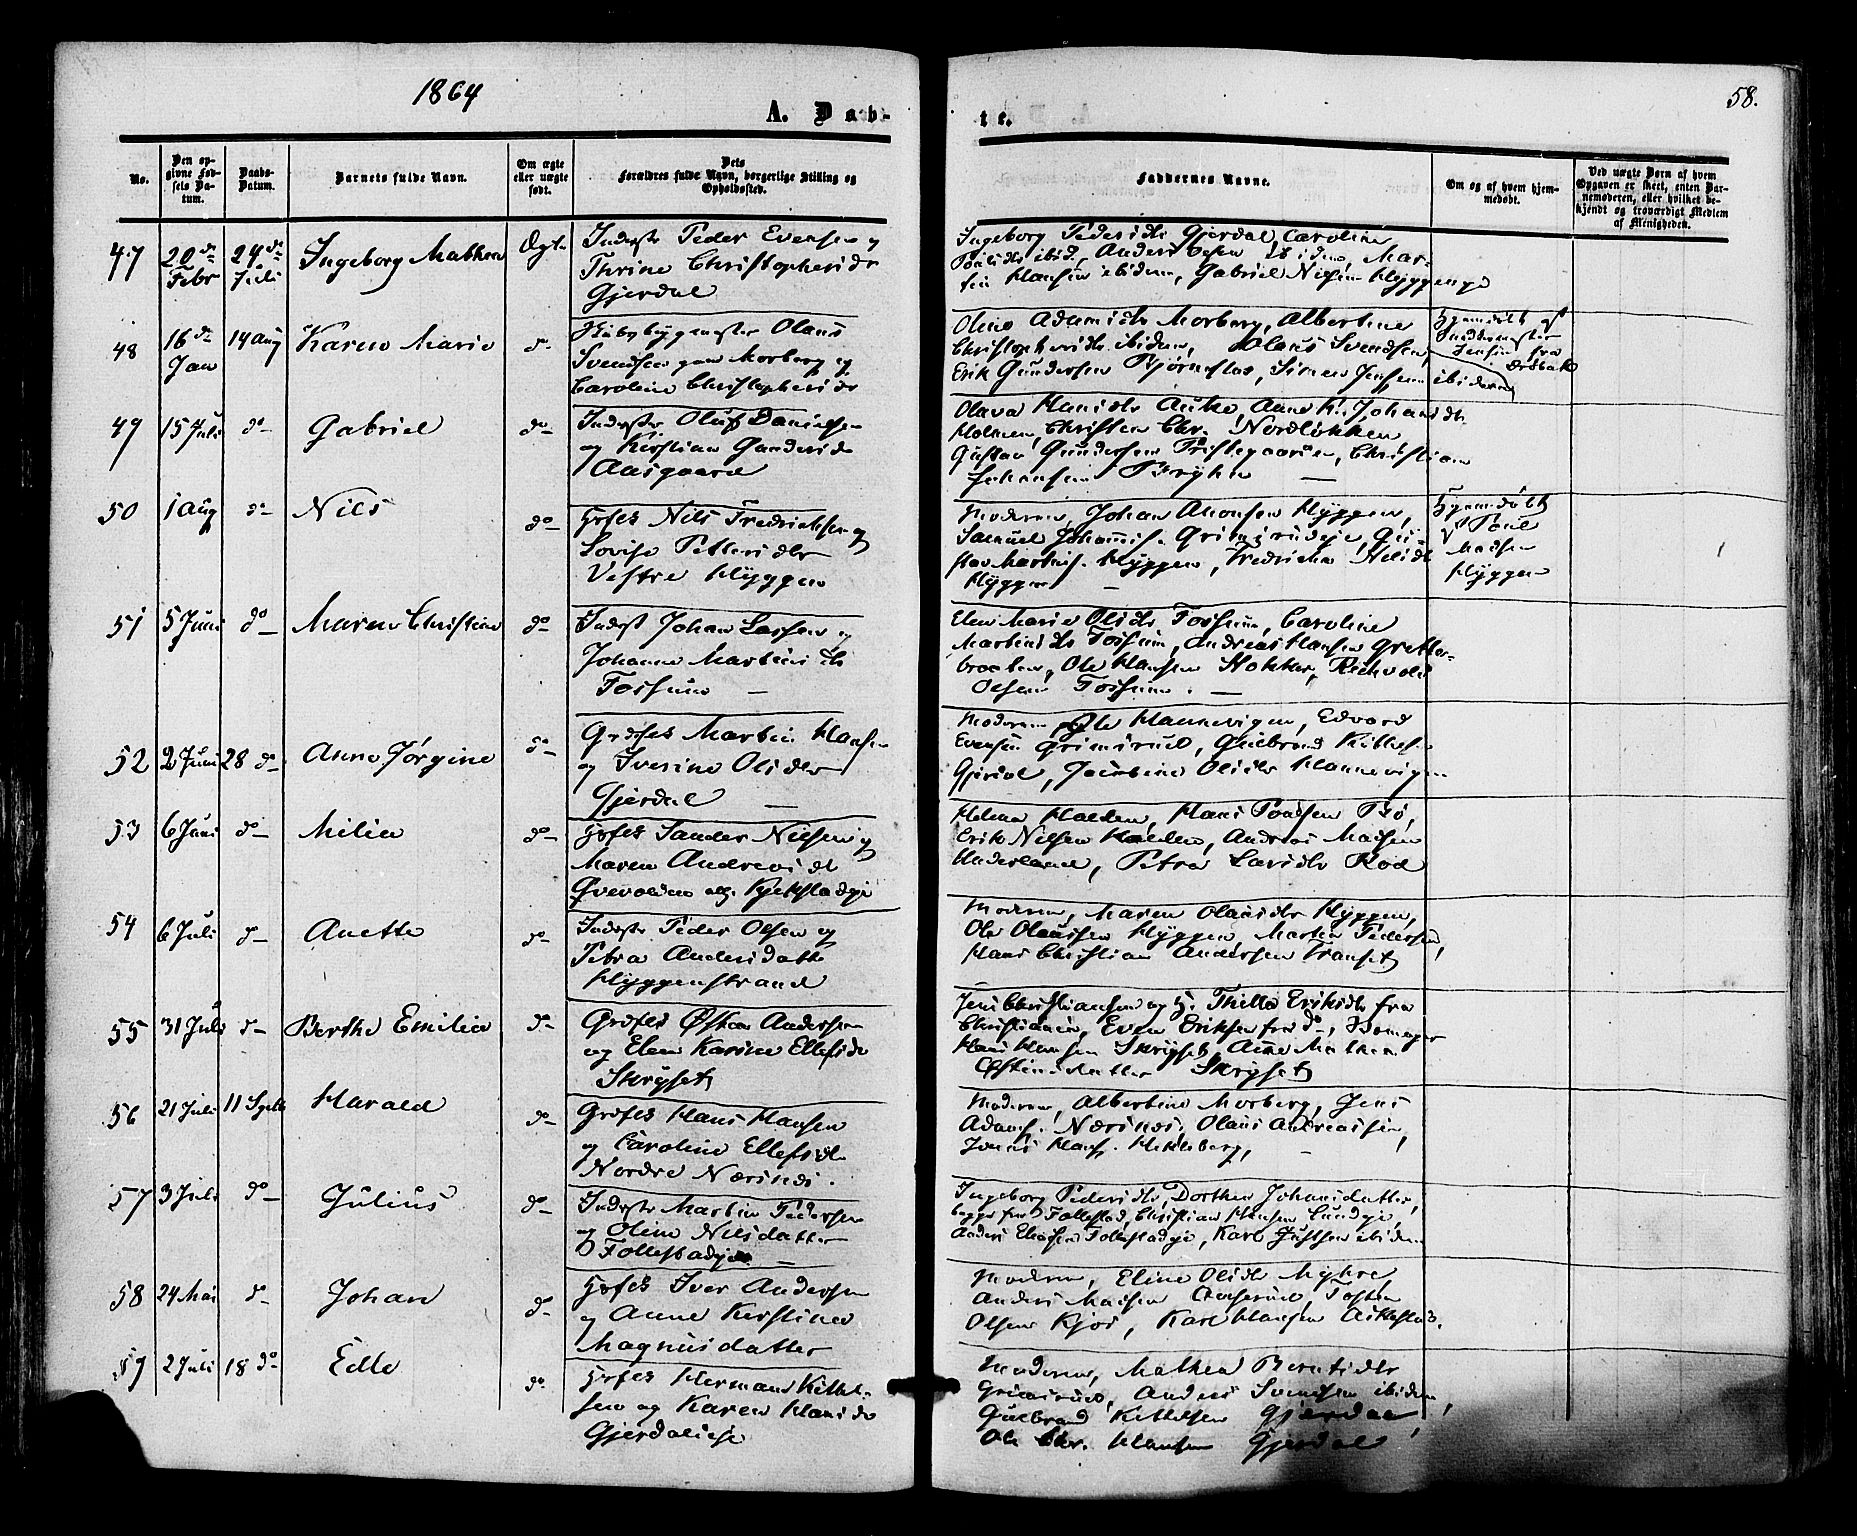 1864
58.
A. Dab-
te.
No.
Den op-
givne Fød-
sels Da-
tum.
Daabs-
Datum.
Barnets fulde Navn.
Om ægte
eller uægte
født.
Dets
Forældres fulde Navn, borgerlige Stilling og
Opholdssted.
Faddernes Navne.
Om og af hvem hjem-
medøbt.
Ved uægte Børn af hvem
Opgaven er skeet, enten Bar-
nemoderen, eller hvilket be-
kjendt og troværdigt Medlem
af Menigheden.
47 20de Febr 24de Juli Ingeborg Mathea Ægte
Inderste Peder Evensen og
Thrine Christophersdr
Gjerdal
Ingeborg Pedersdtr Gjerdal, Caroline
ibid, Anders Olsen ibidem, Mar-
tin Hansen ibidem, Gabriel Nilsen Hyggen
48 16de Jan 14 Aug Karen Marie do
Olaus
Svendsen Morberg og
Caroline Christophersdr
Oline Adamsdtr Morberg, Albertine
Christophersdtr ibidem, Olaus Svendsen,
Erik Gundersen Bjørnstad, Simen Jensen ibidem
Hjemmedøbt af
Jensen fra
Drøbak
49 15 Juli do Gabriel do
Inderste Oluf Danielsen
og Kirstian Gundersdr
Aasgaard
Olava Hansdtr Auke, Anne K. Johansdtr
Holmen, Christen Chr. Nordløkken
Gustav Gundersen Christian
Johansen
50 1 Aug do Nils do
Hosfs Nils Fredriksen og
Lovise Pettersdtr
Vestre Hyggen
Moderen, Johan Hyggen,
Samuel Johannes. Grimsrudeje, Gu-
stav Martins. Hyggen, Fredrikka Nilsdtr
Hyggen
Hjemmedøbt
af Poul
Madsen
Hyggen
51 5 Juni do Maren Christine do
Inderst Johan Larsen og
Johanne Martinsdtr
Fossum
Elen Marie Olsdtr Fossum, Caroline
Martinsdtr Fossum, Andreas Hansen Gretter-
braaten, Ole Hansen Stokker,
Olsen Fossum.
52 2 Juni 28 do Anne Jørgine do
Grdfs Martin Hansen
og Iverine Olsdtr
Gjerdal
Moderen, Ole Hannevigen, Edvard
Evensen Grimsrud, Gulbrand Kittels.
Gjerdal, Jacobine Olsdtr Hannevigen
53 6 Juni do Milia do
Hosfs Sander Nilsen og
Maren Andreasdtr
Kjekstadeje
Helena Halden, Hans Poulsen Bø,
Erik Nilsen Halden, Andreas Madsen
Underland, Petra Larsdtr Rød
54 6 Juli do Anette do
Inderste Peder Olsen og
Petra Andersdatter
Hyggenstrand
Moderen, Maren Olausdtr Hyggen,
Ole Olaussen Hyggen, Martin Pedersen,
Hans Christian Andersen Transet
55 31 Juli do Berthe Emilia do
Grdfs Østen Andersen
og Elen Karine Ellefsdr
Skryset
Jens Christiansen og H. Thilla Eriksdtr fra
Christiania, Even Eriksen fra do,
Hans Hansen Skryset, Anne Mathea
Østensdatter Skryset
56 21 Juli 11 Septb Harald do
Grdfs Hans Hansen
og Caroline Ellefsdtr
Nordre Nærsnes.
Moderen, Albertine Morberg, Jens
Adams. Nærsnes, Olaus Andreassen,
Hans. Heklebberg,
57 3 Juli do Julius do
Inderste Martin Pedersen
og Oline Nilsdatter
Follestadeje
Ingeborg Pedersdtr, Dorthea Johansdatter,
begge fra Follestad, Christian Hansen Lundeje,
Anders Eliasen Follestadeje, Karl Justsen ibidem
58 24 Mai do Johan do
Hosfs Iver Andersen
og Anne Kirstine
Magnusdatter
Moderen, Eline Olsdtr Myhre,
Anders Madsen Tosten
Olsen Kjos, Karl Hansen
59 2 Juli 18 do Edle do
Hosfs Herman Kittel-
sen og Karen Hansdr
Gjerdaleie
Moderen, Mathea Berntsdtr
Grimsrud, Anders Svendsen ibidem,
Gulbrand Kittelsen Gjerdal
Ole Chr. Hansen Gjerdal